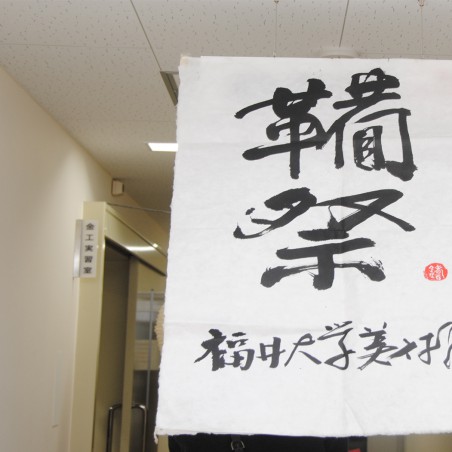 鞴
祭
福井大学美
金工実習室